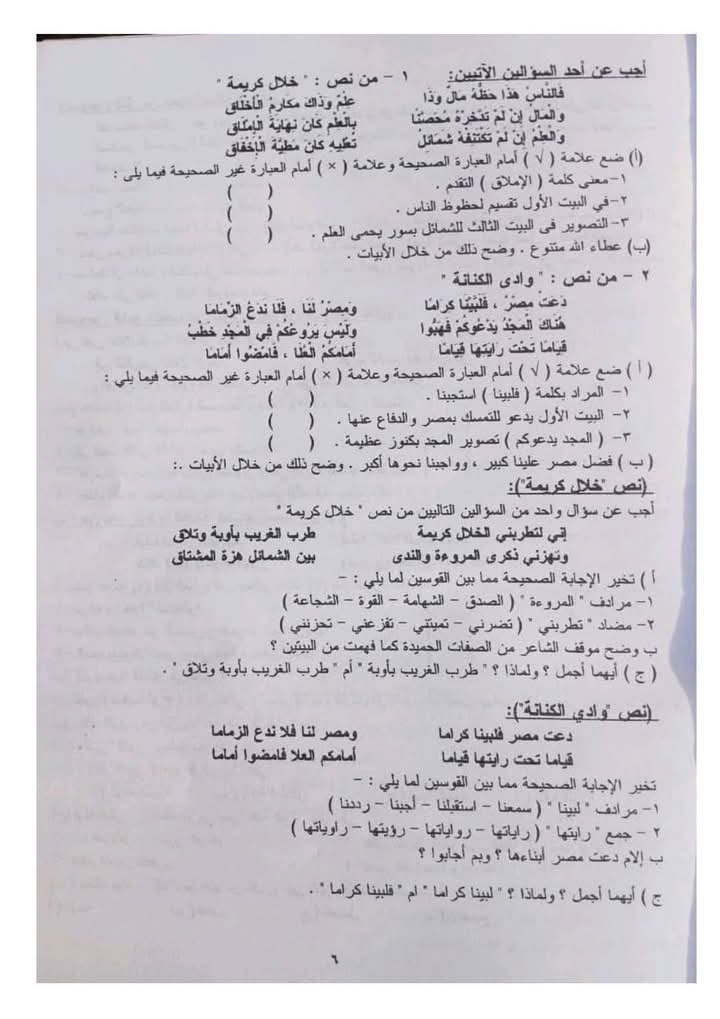 أجب عن أحد السؤالين الآتيين: ١ - من نص : " خلال كريمة "
فَالنَّاسُ هَذَا حَظُّهُ مَالٌ وَذَا عِلْمٌ وَذَاكَ مَكَارِمُ الْأَخْلَاقِ
وَالْمَالُ إِنْ لَمْ تَدَّخِرْهُ مُحَصَّنًا بِالْعِلْمِ كَانَ نِهَايَةَ الْإِمْلَاقِ
وَالْعِلْمُ إِنْ لَمْ تَكْتَنِفْهُ شَمَائِلُ تُعْلِيهِ كَانَ مَطِيَّةَ الْإِخْفَاقِ
(أ) ضع علامة ( √ ) أمام العبارة الصحيحة وعلامة ( × ) أمام العبارة غير الصحيحة فيما يلى :
١- معنى كلمة ( الإملاق ) التقدم . ( )
٢- في البيت الأول تقسيم لحظوظ الناس . ( )
٣- التصوير فى البيت الثالث للشمائل بسور يحمى العلم . ( )
(ب) عطاء الله متنوع . وضح ذلك من خلال الأبيات .
٢ - من نص : " وادى الكنانة "
دَعَتْ مِصْرُ ، فَلَبَّيْنَا كِرَامًا وَمِصْرُ لَنَا ، فَلَا نَدَعُ الزِّمَامَا
هُنَاكَ الْمَجْدُ يَدْعُوكُمْ فَهُبُّوا وَلَيْسَ يَرُوعُكُمْ فِي الْمَجْدِ خَطْبُ
قِيَامًا تَحْتَ رَايَتِهَا قِيَامًا أَمَامَكُمُ الْعُلَا ، فَامْضُوا أَمَامَا
( أ ) ضع علامة ( √ ) أمام العبارة الصحيحة وعلامة ( × ) أمام العبارة غير الصحيحة فيما يلي :
١- المراد بكلمة ( فلبينا ) استجبنا . ( )
٢- البيت الأول يدعو للتمسك بمصر والدفاع عنها . ( )
٣- ( المجد يدعوكم ) تصوير المجد بكنوز عظيمة . ( )
( ب ) فضل مصر علينا كبير ، وواجبنا نحوها أكبر . وضح ذلك من خلال الأبيات .:
(نص "خلال كريمة"):
أجب عن سؤال واحد من السؤالين التاليين من نص " خلال كريمة "
إني لتطربني الخلال كريمة طرب الغريب بأوبة وتلاق
وتهزني ذكرى المروءة والندى بين الشمائل هزة المشتاق
أ ) تخير الإجابة الصحيحة مما بين القوسين لما يلي : -
١- مرادف " المروءة " ( الصدق - الشهامة - القوة - الشجاعة )
٢- مضاد " تطربني " ( تضرني - تميتني - تفزعني - تحزنني )
ب وضح موقف الشاعر من الصفات الحميدة كما فهمت من البيتين ؟
( ج ) أيهما أجمل ؟ ولماذا ؟ " طرب الغريب بأوبة " أم " طرب الغريب بأوبة وتلاق " .
(نص "وادي الكنانة"):
دعت مصر فلبينا كراما ومصر لنا فلا ندع الزماما
قياما تحت رايتها قياما أمامكم العلا فامضوا أماما
تخير الإجابة الصحيحة مما بين القوسين لما يلي : -
١- مرادف " لبينا " ( سمعنا - استقبلنا - أجبنا - رددنا )
٢ - جمع " رايتها " ( راياتها - رواياتها - رؤيتها - راوياتها )
ب إلام دعت مصر أبناءها ؟ وبم أجابوا ؟
ج ) أيهما أجمل ؟ ولماذا ؟ " لبينا كراما " ام " فلبينا كراما " .
٦